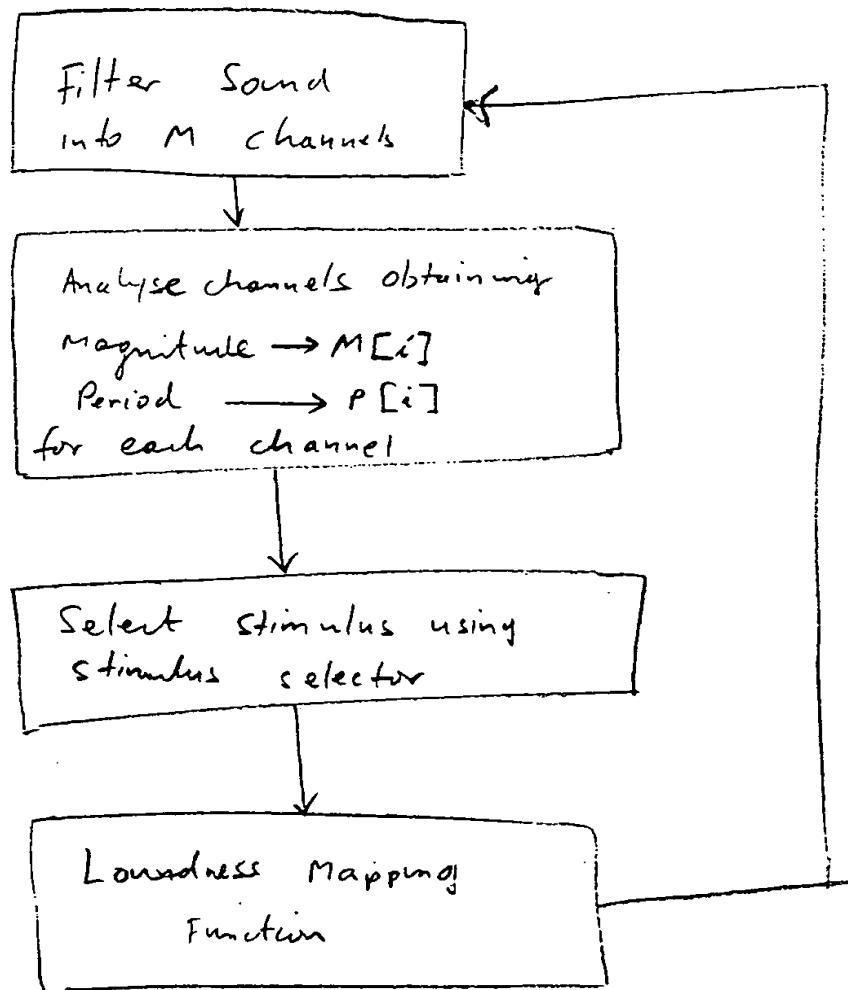 Filter Sound
into M channels
Analyse channels obtaining
Magnitude → M[i]
Period → P[i]
for each channel
Select stimulus using
stimulus selector
Loudness Mapping
Function